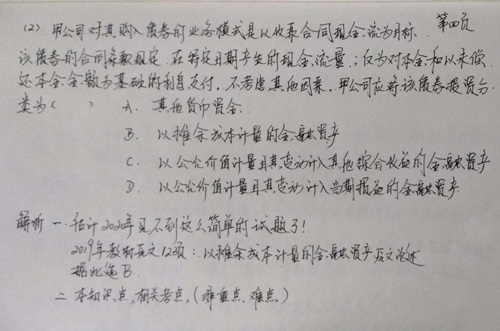 (2) 甲公司对其购入债券的业务模式是以收取合同现金流为目标. 第四页
该债券的合同条款规定. 在特定日期产生的现金流量, 仅为对本金和以未偿
还本金金额为基础的利息支付, 不考虑其他因素, 甲公司应将该债券投资分
类为( ) A. 其他货币资金.
B. 以摊余成本计量的金融资产
C. 以公允价值计量且其变动计入其他综合收益的金融资产
D. 以公允价值计量且其变动计入当期损益的金融资产
解析 一 估计2020年见不到这么简单的试题了!
2019年教材原文12项: 以摊余成本计量的金融资产 原文论述
据此选B.
二 本知识点, 相关考点. (难重点, 难点.)